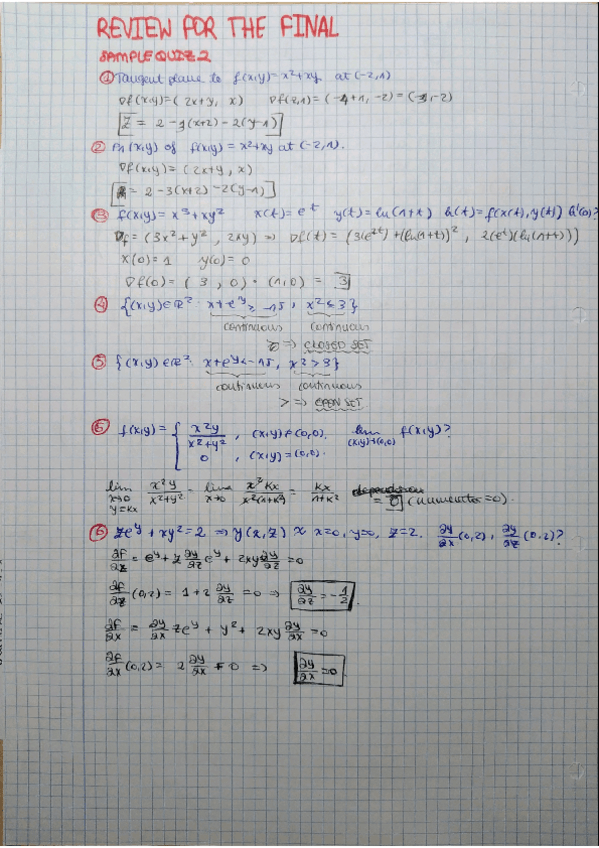 REVIEW FOR THE FINAL
SAMPLE QUIZ 2
① Tangent plane to f(x,y)=x²+xy at (-2,1)
∇f(x,y)=(2x+y, x) ∇f(2,1)=(-4+1, -2)=(-3,-2)
Z = 2-3(x+2)-2(y-1)
② P1(x,y) of f(x,y)=x²+xy at (-2,1).
∇f(x,y)=(2x+y, x)
= 2-3(x+2)-2(y-1)
③ f(x,y)=x³+xy² x(t)=e^t y(t)=ln(1+t) h(t)=f(x(t),y(t)) h'(0)?
∇f=(3x²+y², 2xy) => ∇f(t)=(3(e^2t)+(ln(1+t))², 2(e^t)(ln(1+t)))
x(0)=1 y(0)=0
∇f(0)=(3,0)·(1,0)=3
④ {(x,y)∈R²: x+e^y≥-15, x²≤3}
continuous continuous
=> CLOSED SET
⑤ {(x,y)∈R²: x+e^y<-15, x²>3}
continuous continuous
> => OPEN SET
⑤ f(x,y)={ x²y/(x²+y²), (x,y)≠(0,0). lim (x,y)→(0,0) f(x,y)?
0, (x,y)=(0,0).
lim x→0 y=kx x²y/(x²+y²) = lim x→0 x²kx/(x²(1+k²)) = kx/(1+k²) = 0 (numerator=0).
⑥ ze^y+xy²=2 => y(x,z) ≈ x=0, y=0, z=2. ∂y/∂x(0,2), ∂y/∂z(0,2)?
∂f/∂z = e^y+z ∂y/∂z e^y+2xy ∂y/∂z =0
∂f/∂z(0,2)=1+2 ∂y/∂z =0 => ∂y/∂z=-1/2.
∂f/∂x = ∂y/∂x ze^y+y²+2xy ∂y/∂x=0
∂f/∂x(0,2)= 2 ∂y/∂x = 0 => ∂y/∂x=0.